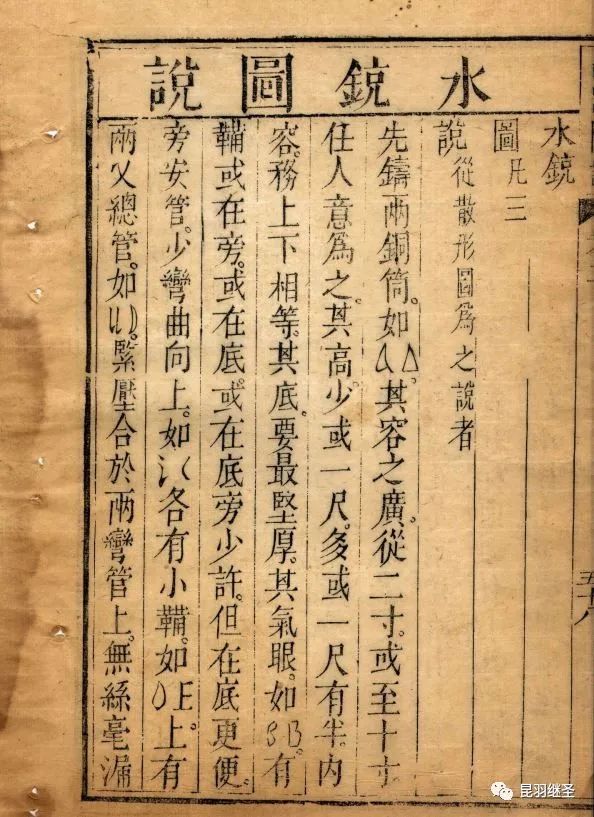 水銃圖說
水銃
圖凡三
說從散形圖為之說者
先鑄兩銅筒。如其容之廣。從二寸。或至十寸
任人意為之。其高。少或一尺。多或一尺有半。內
容。務上下相等。其底。要最堅厚。其氣眼。如B。有
鞴或在旁。或在底。或在底旁少許。但在底更便。
旁安管。少彎曲向上。如各有小鞴。如E。上有
兩乂總管。如。緊壓合於兩彎管上。無絲毫漏
昆羽继圣